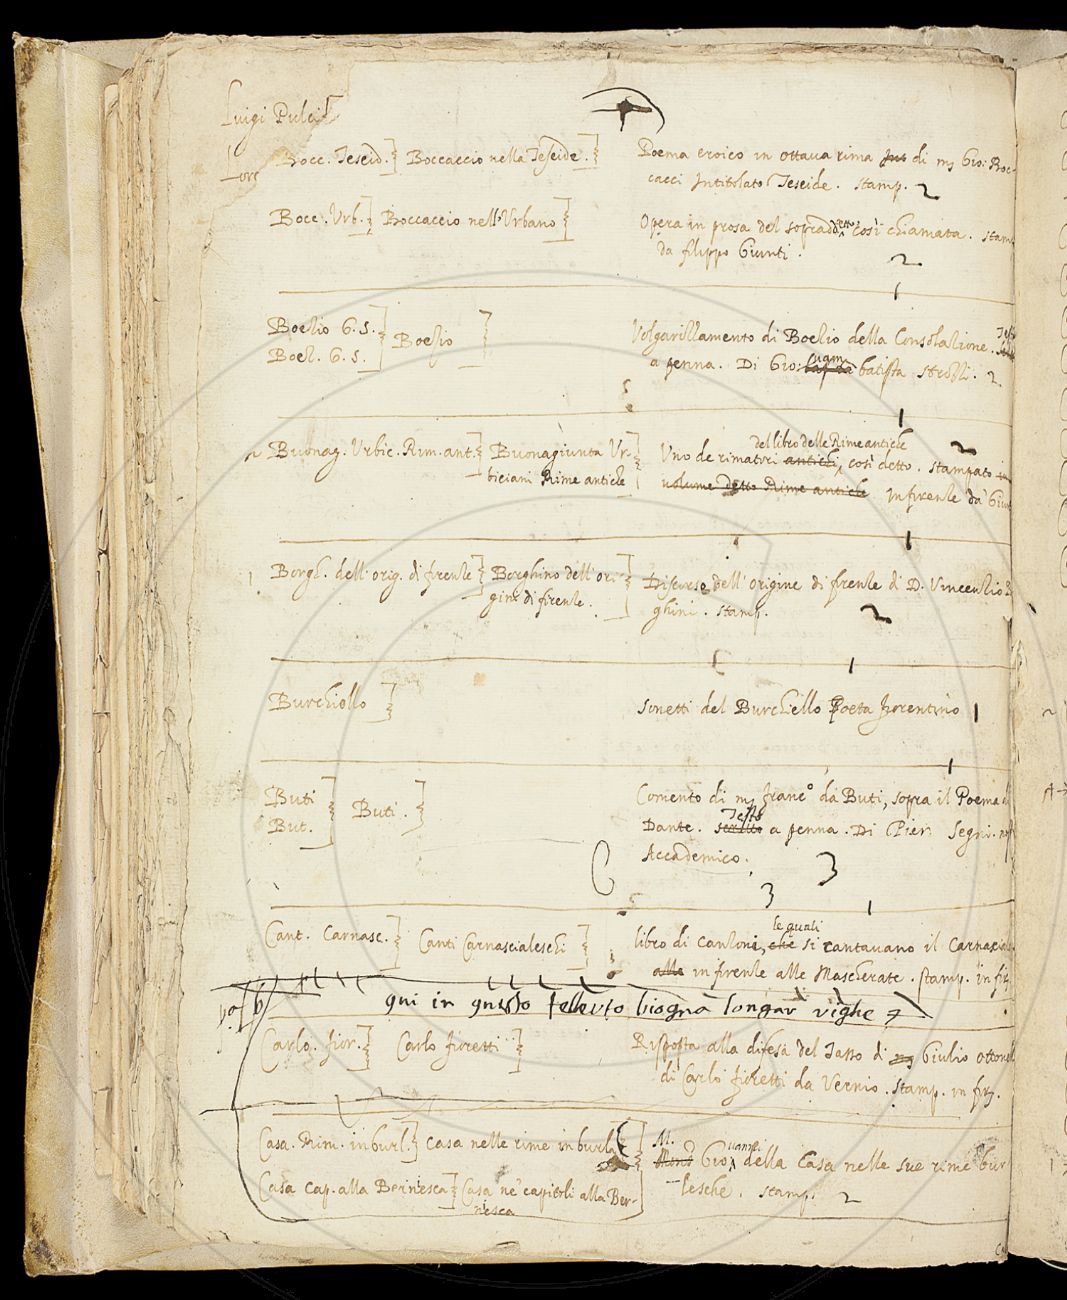 Luigi Pulci
Bocc. Teseid.] Boccaccio nella Teseide.] Poema eroico in ottava rima di mʃ Gio: Boc-
cacci Intitolato Teseide. stamp. 2
Bocc. Urb.] Boccaccio nell'Urbano] Opera in prosa del sopraddetto così chiamata. stam
da filippo Giunti. 2
Boezio G. S.
Boez. G. S.] Boezio] Volgarizzamento di Boezio della Consolazione. Testo
a penna. Di Gio:uam batista Strozzi. 2.
Buonag. Urbic. Rim. ant.] Buonagiunta Ur-
biciani Rime antiche] Uno de rimatori antichi, del libro delle Rime antiche così detto. stampato
volume detto Rime antiche in firenze da Giun
Borgh. dell'orig. di firenze] Borghino dell'ori-
gine di firenze.] Discorso dell'origine di firenze di D. Vincenzio
ghini. stamp. 2
Burchiello] Sonetti del Burchiello Poeta fiorentino
Buti
But.] Buti.] Comento di mʃ franc° da Buti, sopra il Poema
Dante. scritto Testo a penna. Di Pier Segni.
Accademico. 3
3
Cant. Carnasc.] Canti Carnascialeschi] libro di Canzoni, che le quali si cantavano il Carnascia
alle in firenze alle Mascherate. stamp. in fir.
qui in questo bisogna vighe
Carlo. fior.] Carlo fioretti] Risposta alla difesa del Tasso di mʃ Giulio Otton
di Carlo fioretti da Vernio. stamp. in fir.
Casa. Rim. in burl.] Casa nelle rime in burla] M. Gio:uanni della Casa nelle sue rime bur
Casa cap. alla Bernesca] Casa ne' capitoli alla Ber-
nesca] lesche. stamp. 2